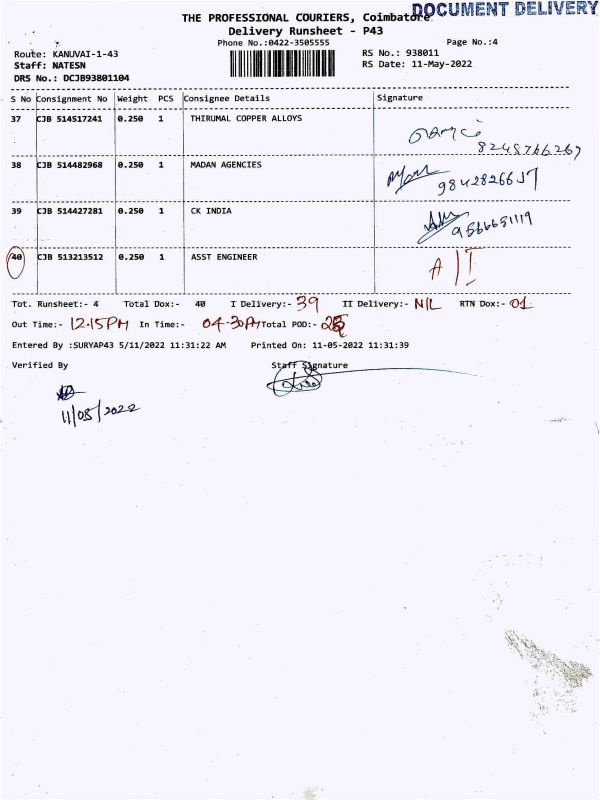 DOCUMENT DELIVERY
THE PROFESSIONAL COURIERS, Coimbatore
Delivery Runsheet - P43
Phone No.:0422-3505555 Page No.:4
Route: KANUVAI-1-43 RS No.: 938011
Staff: NATESN RS Date: 11-May-2022
DRS No.: DCJB93801104
S No Consignment No Weight PCS Consignee Details Signature
37 CJB 514517241 0.250 1 THIRUMAL COPPER ALLOYS
8248766267
38 CJB 514482968 0.250 1 MADAN AGENCIES
9842826657
39 CJB 514427281 0.250 1 CK INDIA
9566651119
40 CJB 513213512 0.250 1 ASST ENGINEER
Tot. Runsheet:- 4 Total Dox:- 40 I Delivery:- 39 II Delivery:- NIL RTN Dox:- 01
Out Time:- 12.15PM In Time:- 04-30 Total POD:-
Entered By :SURYAP43 5/11/2022 11:31:22 AM Printed On: 11-05-2022 11:31:39
Verified By Staff Signature
11/05/2022